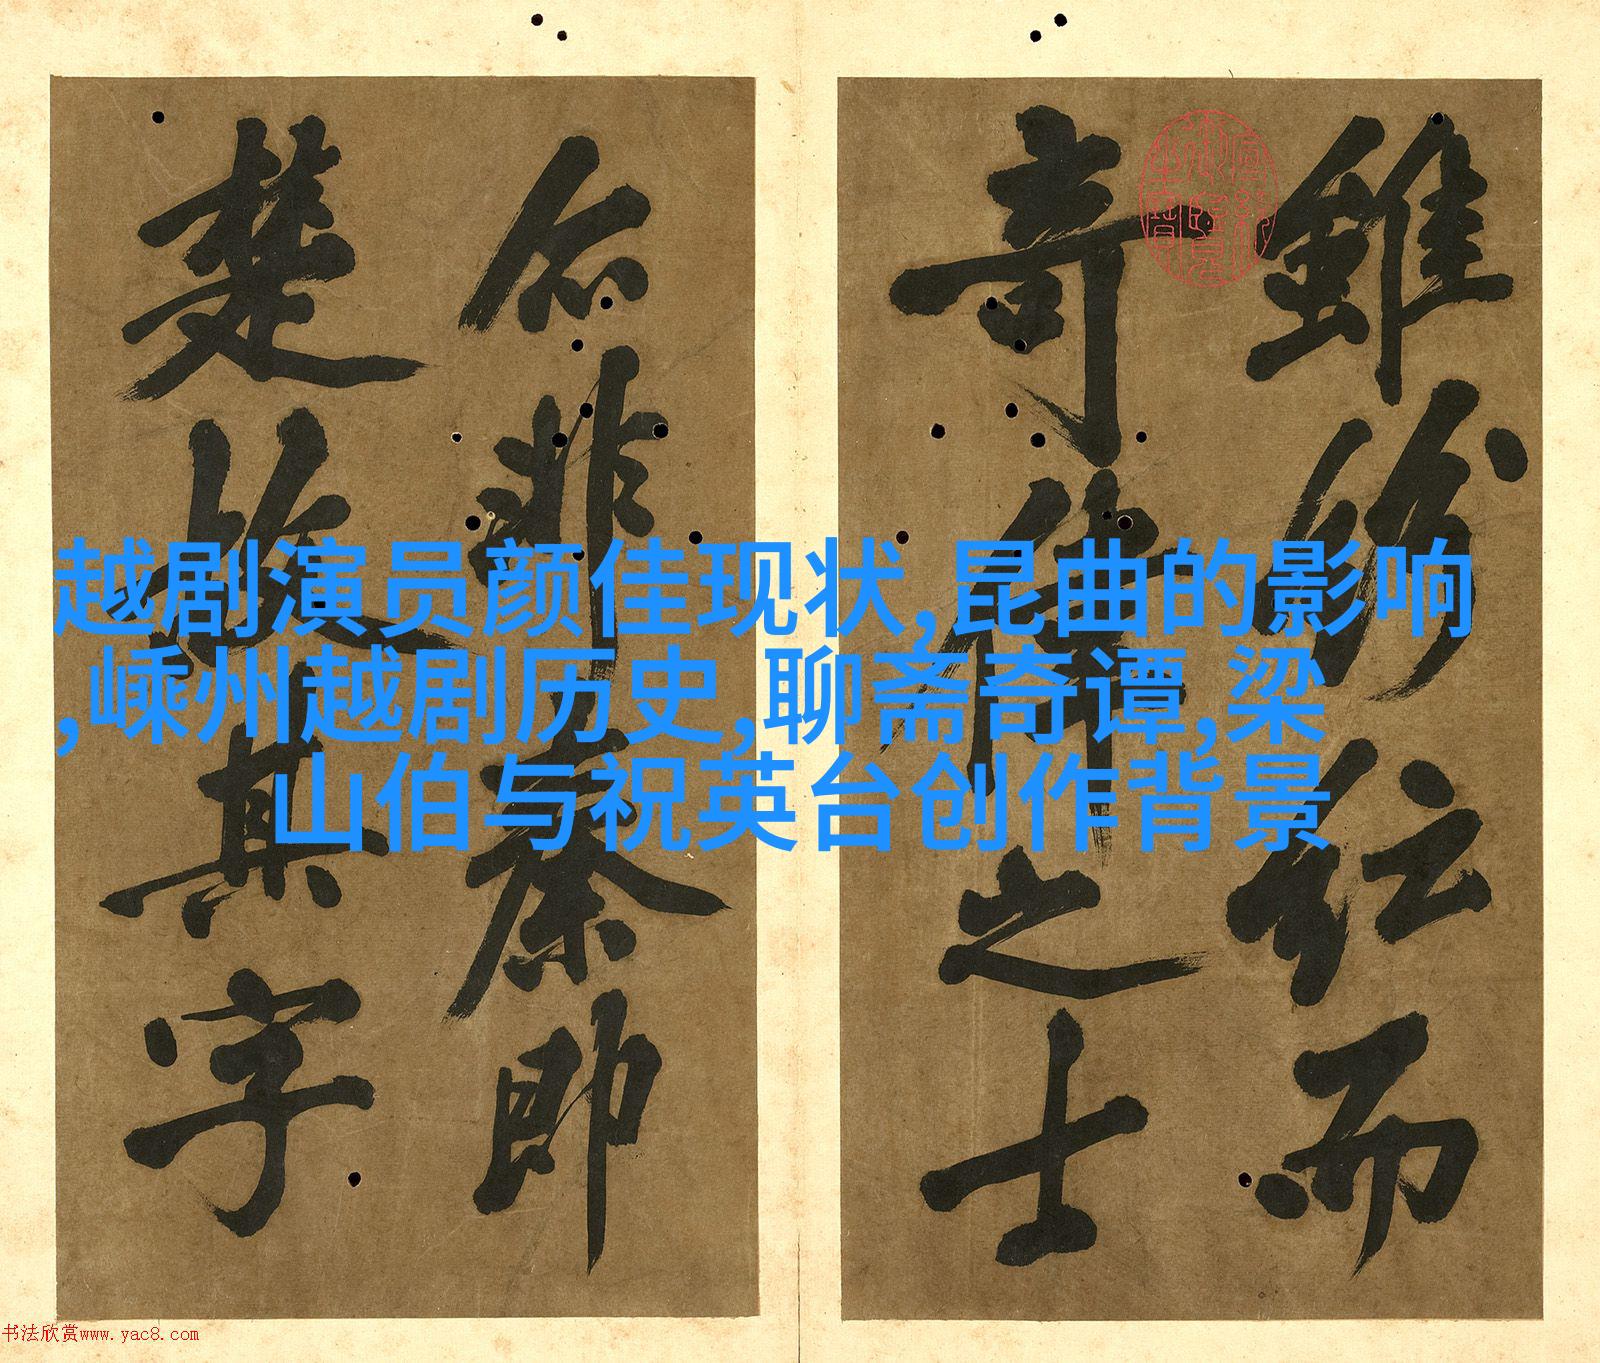 越剧演员颜佳现状,昆曲的影响
,嵊州越剧历史,聊斋奇谭,梁
山伯与祝英台创作背景
雖紛紜而
奇偉之士
不非秦即
楚故其字
书法欣赏www.yac8.com